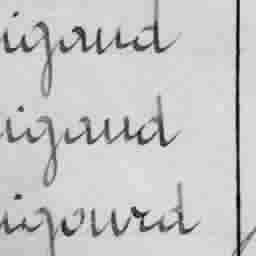 igaud
igaud
igourd